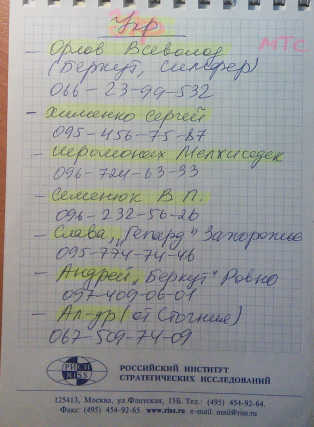 Укр
МТС
– Орлов Всеволод
(Беркут, Симфер)
066-23-99-532
– Хименко Сергей
095-456-75-87
– Иеромонах Мелхиседек
096-724-63-33
– Семенюк В.П.
096-232-56-26
– Слава, „Гепард" Запорожье
095-774-74-46
– Андрей „Беркут" Ровно
097-409-06-01
– Ал-др (от Стогния)
067-509-74-09
РИСИ
RISS
РОССИЙСКИЙ ИНСТИТУТ
СТРАТЕГИЧЕСКИХ ИССЛЕДОВАНИЙ
125413, Москва, ул.Флотская, 15Б. Тел.: (495) 454-92-64.
Факс: (495) 454-92-65 www.riss.ru e-mail: mail@riss.ru